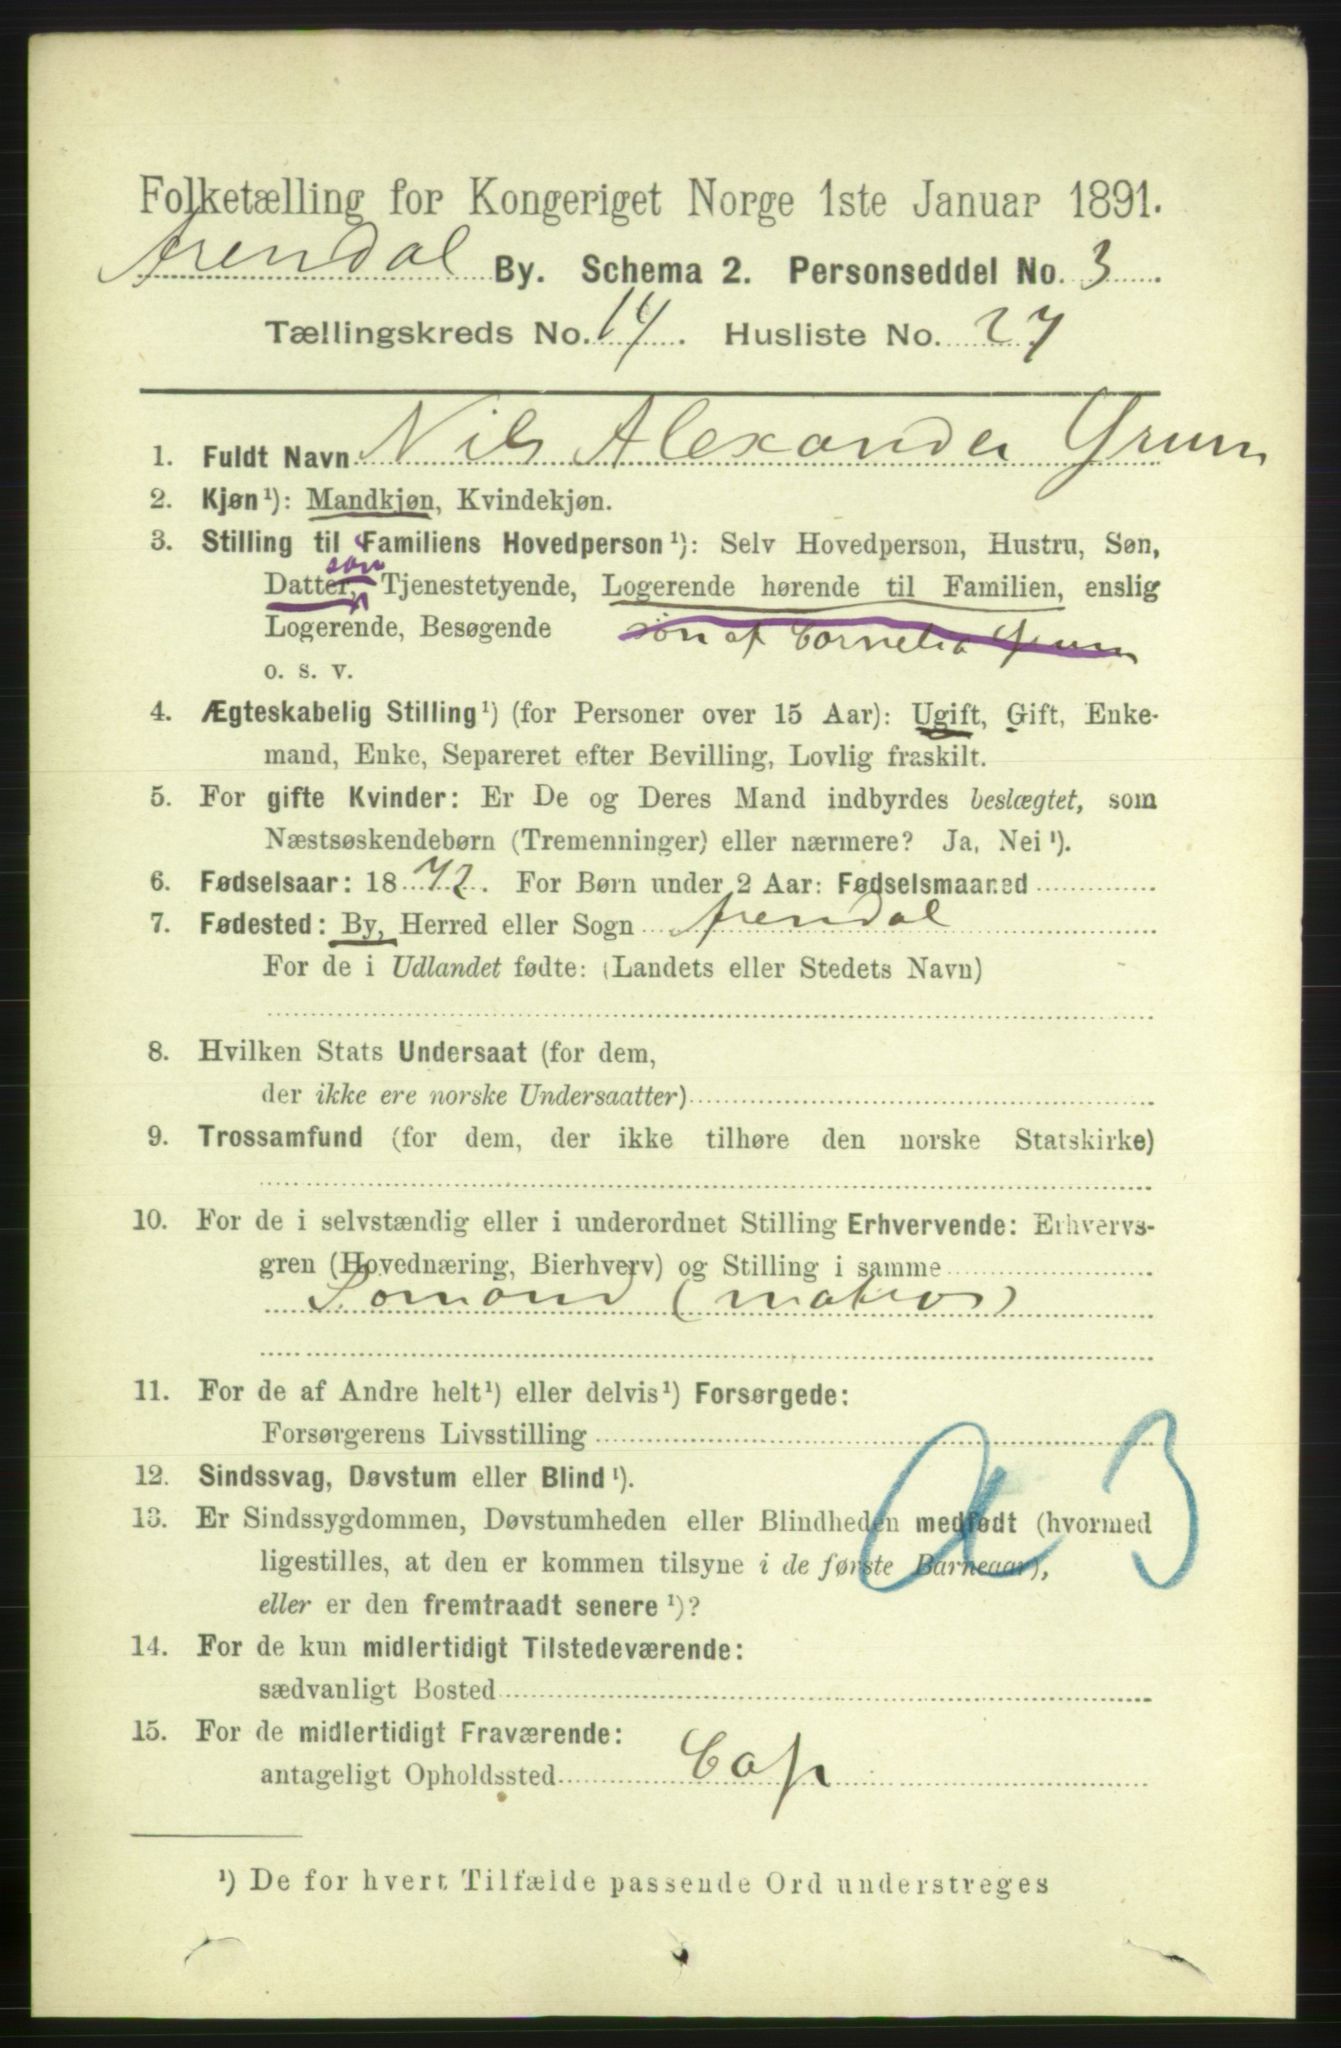 Folketælling for Kongeriget Norge 1ste Januar 1891.
Arendal By. Schema 2. Personseddel No. 3
Tællingskreds No. 14. Husliste No. 27
1. Fuldt Navn Nils Alexander Grum
2. Kjøn¹): Mandkjøn, Kvindekjøn.
3. Stilling til Familiens Hovedperson¹): Selv Hovedperson, Hustru, Søn,
søn
Datter, Tjenestetyende, Logerende hørende til Familien, enslig
Logerende, Besøgende søn af Cornelia Grum
o. s. v.
4. Ægteskabelig Stilling¹) (for Personer over 15 Aar): Ugift, Gift, Enke-
mand, Enke, Separeret efter Bevilling, Lovlig fraskilt.
5. For gifte Kvinder: Er De og Deres Mand indbyrdes beslægtet, som
Næstsøskendebørn (Tremenninger) eller nærmere? Ja, Nei¹).
6. Fødselsaar: 1872. For Børn under 2 Aar: Fødselsmaaned
7. Fødested: By, Herred eller Sogn Arendal
For de i Udlandet fødte: (Landets eller Stedets Navn)
8. Hvilken Stats Undersaat (for dem,
der ikke ere norske Undersaatter)
9. Trossamfund (for dem, der ikke tilhøre den norske Statskirke)
10. For de i selvstændig eller i underordnet Stilling Erhvervende: Erhvervs-
gren (Hovednæring, Bierhverv) og Stilling i samme
Sømand (matros)
11. For de af Andre helt¹) eller delvis¹) Forsørgede:
Forsørgerens Livsstilling
12. Sindssvag, Døvstum eller Blind¹).
a 3
13. Er Sindssygdommen, Døvstumheden eller Blindheden medfødt (hvormed
ligestilles, at den er kommen tilsyne i de første Barneaar),
eller er den fremtraadt senere¹)?
14. For de kun midlertidigt Tilstedeværende:
sædvanligt Bosted
15. For de midlertidigt Fraværende:
antageligt Opholdssted Cap
¹) De for hvert Tilfælde passende Ord understreges